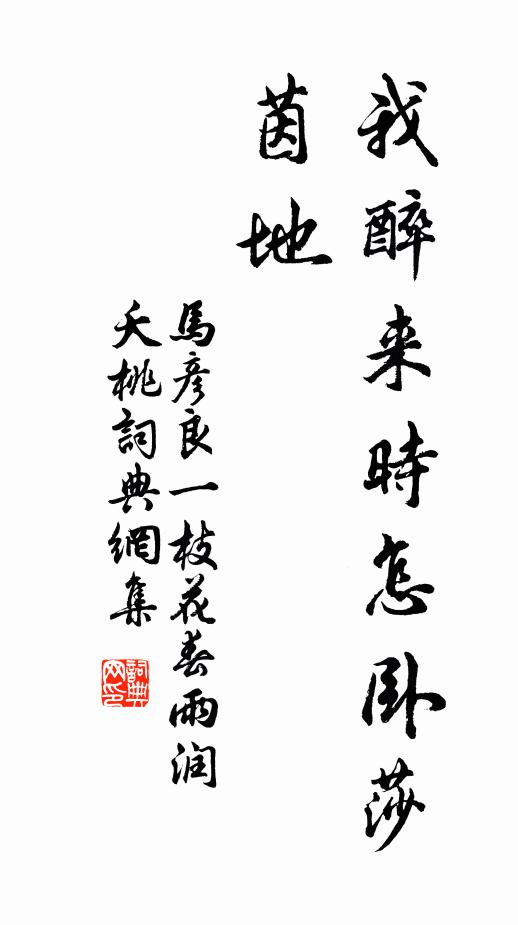 我醉来時怎卧莎
茵地
馬彦良一枝花春雨润
夭桃詞典網集
詞典网印